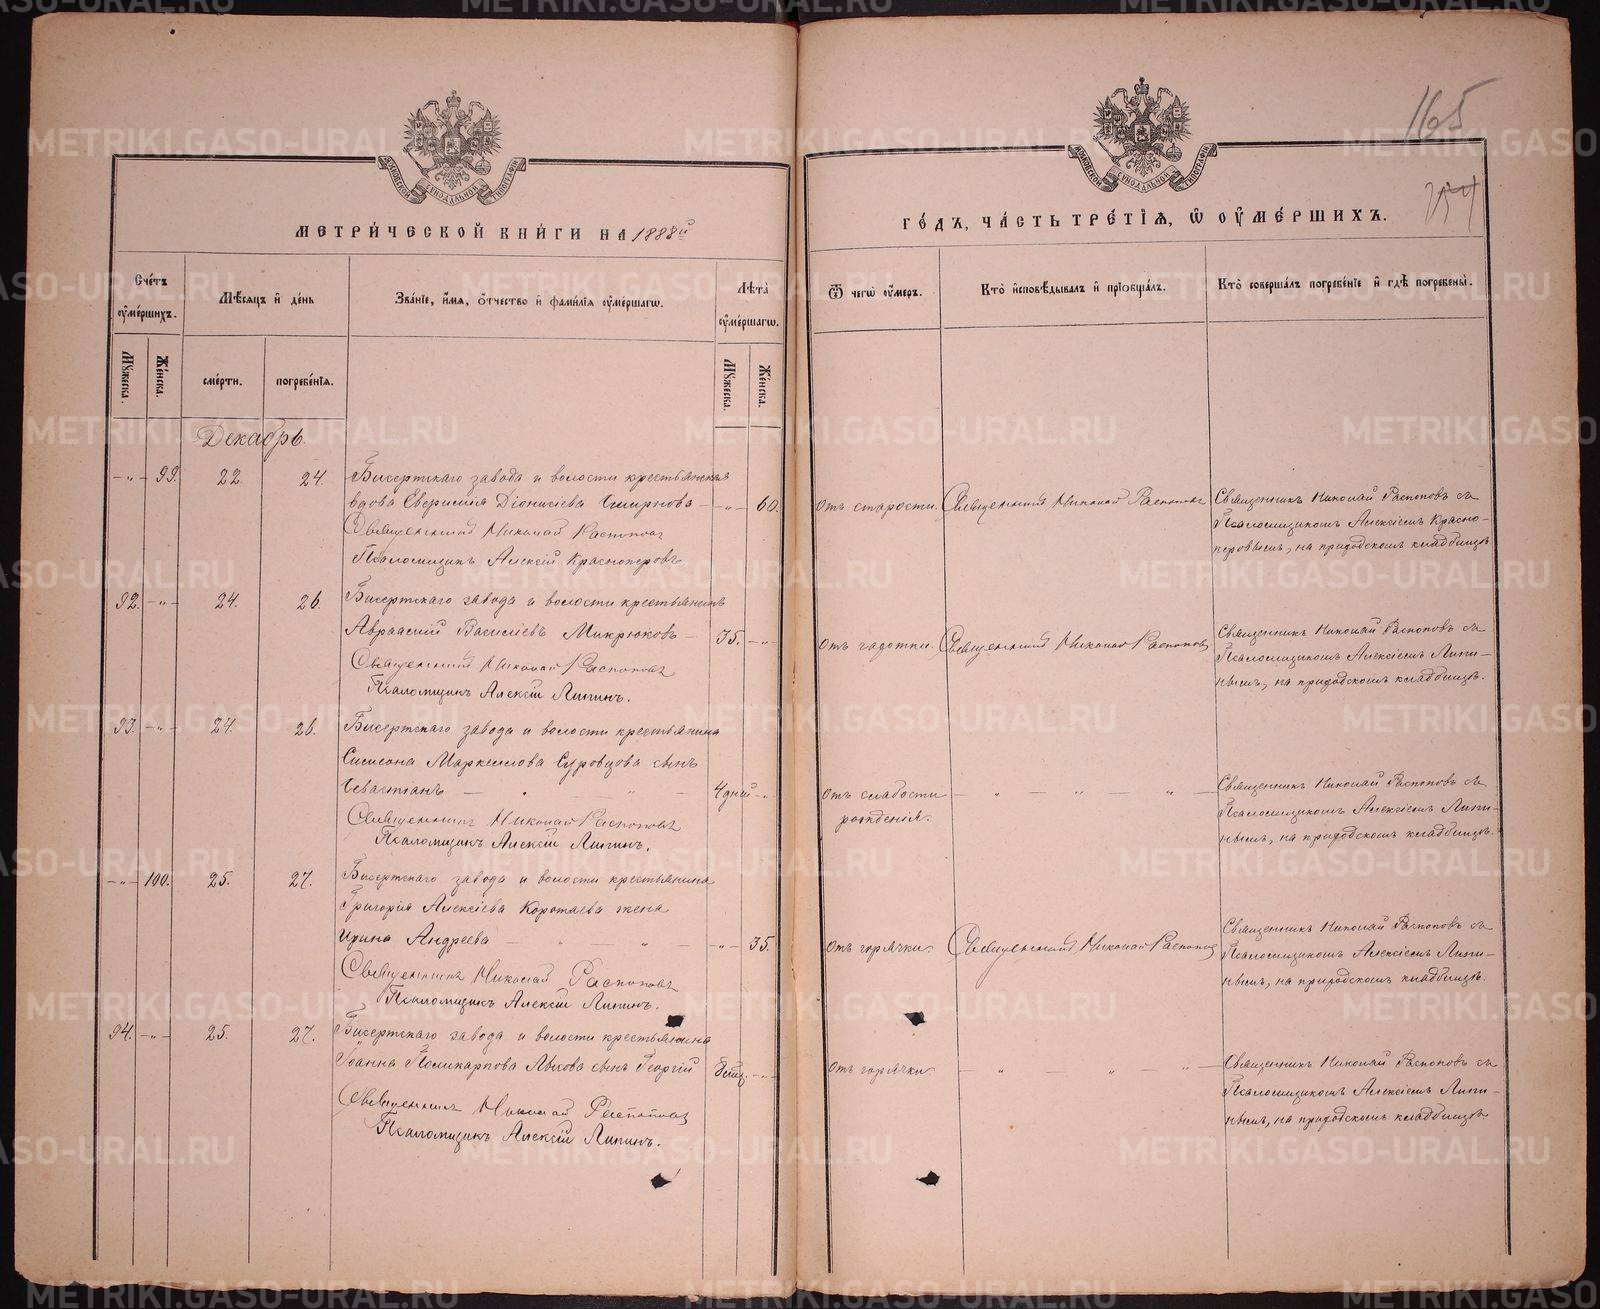 165
МЕТРИЧЕСКОЙ КНИГИ НА 1888й
ГОДЪ, ЧАСТЬ ТРЕТІЯ, Ѿ ОУМЕРШИХЪ.
Счетъ оумершихъ.
Мѣсяцъ и день
Званіе, имя, отчество и фамилія оумершаго.
Лѣта оумершаго.
Ѿ чего оумеръ.
Кто исповѣдывалъ и пріобщалъ.
Кто совершалъ погребеніе и гдѣ погребены.
Мужеска.
Женска.
смерти.
погребенія.
Мужеска.
Женска.
Декабрь.
-"- 99. 22. 24. Бисертскаго завода и волости крестьянская
вдова Діонисіева Смирнова -"- 60.
Священникъ Николай Распоповъ
Псаломщикъ Алексій Красноперовъ
отъ старости. Священникъ Николай Распоповъ
Священникъ Николай Распоповъ съ
Псаломщикомъ Алексіемъ Красно-
перовымъ, на приходскомъ кладбищѣ
92. -"- 24. 26. Бисертскаго завода и волости крестьянинъ
Василіевъ Микрюковъ 35. -"-
Священникъ Николай Распоповъ
Псаломщикъ Алексій Липинъ.
отъ чахотки. Священникъ Николай Распоповъ
Священникъ Николай Распоповъ съ
Псаломщикомъ Алексіемъ Липи-
нымъ, на приходскомъ кладбищѣ.
93. -"- 24. 26. Бисертскаго завода и волости крестьянина
Симеона Маркеллова Суровцова сынъ
Севастіанъ - " - " - 4 дней -"-
Священникъ Николай Распоповъ
Псаломщикъ Алексій Липинъ.
отъ слабости - " - " - " -
рожденія.
Священникъ Николай Распоповъ съ
Псаломщикомъ Алексіемъ Липи-
нымъ, на приходскомъ кладбищѣ.
-"- 100. 25. 27. Бисертскаго завода и волости крестьянина
Григорія Алексіева Коротаева жена
Ирина Андреева - " - " - -"- 35.
Священникъ Николай Распоповъ
Псаломщикъ Алексій Липинъ.
отъ горячки. Священникъ Николай Распоповъ
Священникъ Николай Распоповъ съ
Псаломщикомъ Алексіемъ Липи-
нымъ, на приходскомъ кладбищѣ.
94. -"- 25. 27. Бисертскаго завода и волости крестьянина
Іоанна Поликарпова сынъ Георгій -"-
Священникъ Николай Распоповъ
Псаломщикъ Алексій Липинъ.
отъ горячки - " - " - " -
Священникъ Николай Распоповъ съ
Псаломщикомъ Алексіемъ Липи-
нымъ, на приходскомъ кладбищѣ
METRIKI.GASO-URAL.RU